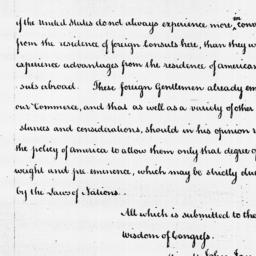 if the United States do not always experience more in
from the residence of foreign Consuls here, than they
experience advantages from the residence of american
suls abroad. These foreign Gentlemen already
our Commerce, and that as well as a variety of other
stances and considerations, should in his opinion
the policy of america to allow them only that degree
weight and pre-eminence, which may be strictly
by the Laws of Nations.
All which is submitted to the
Wisdom of Congress.
John